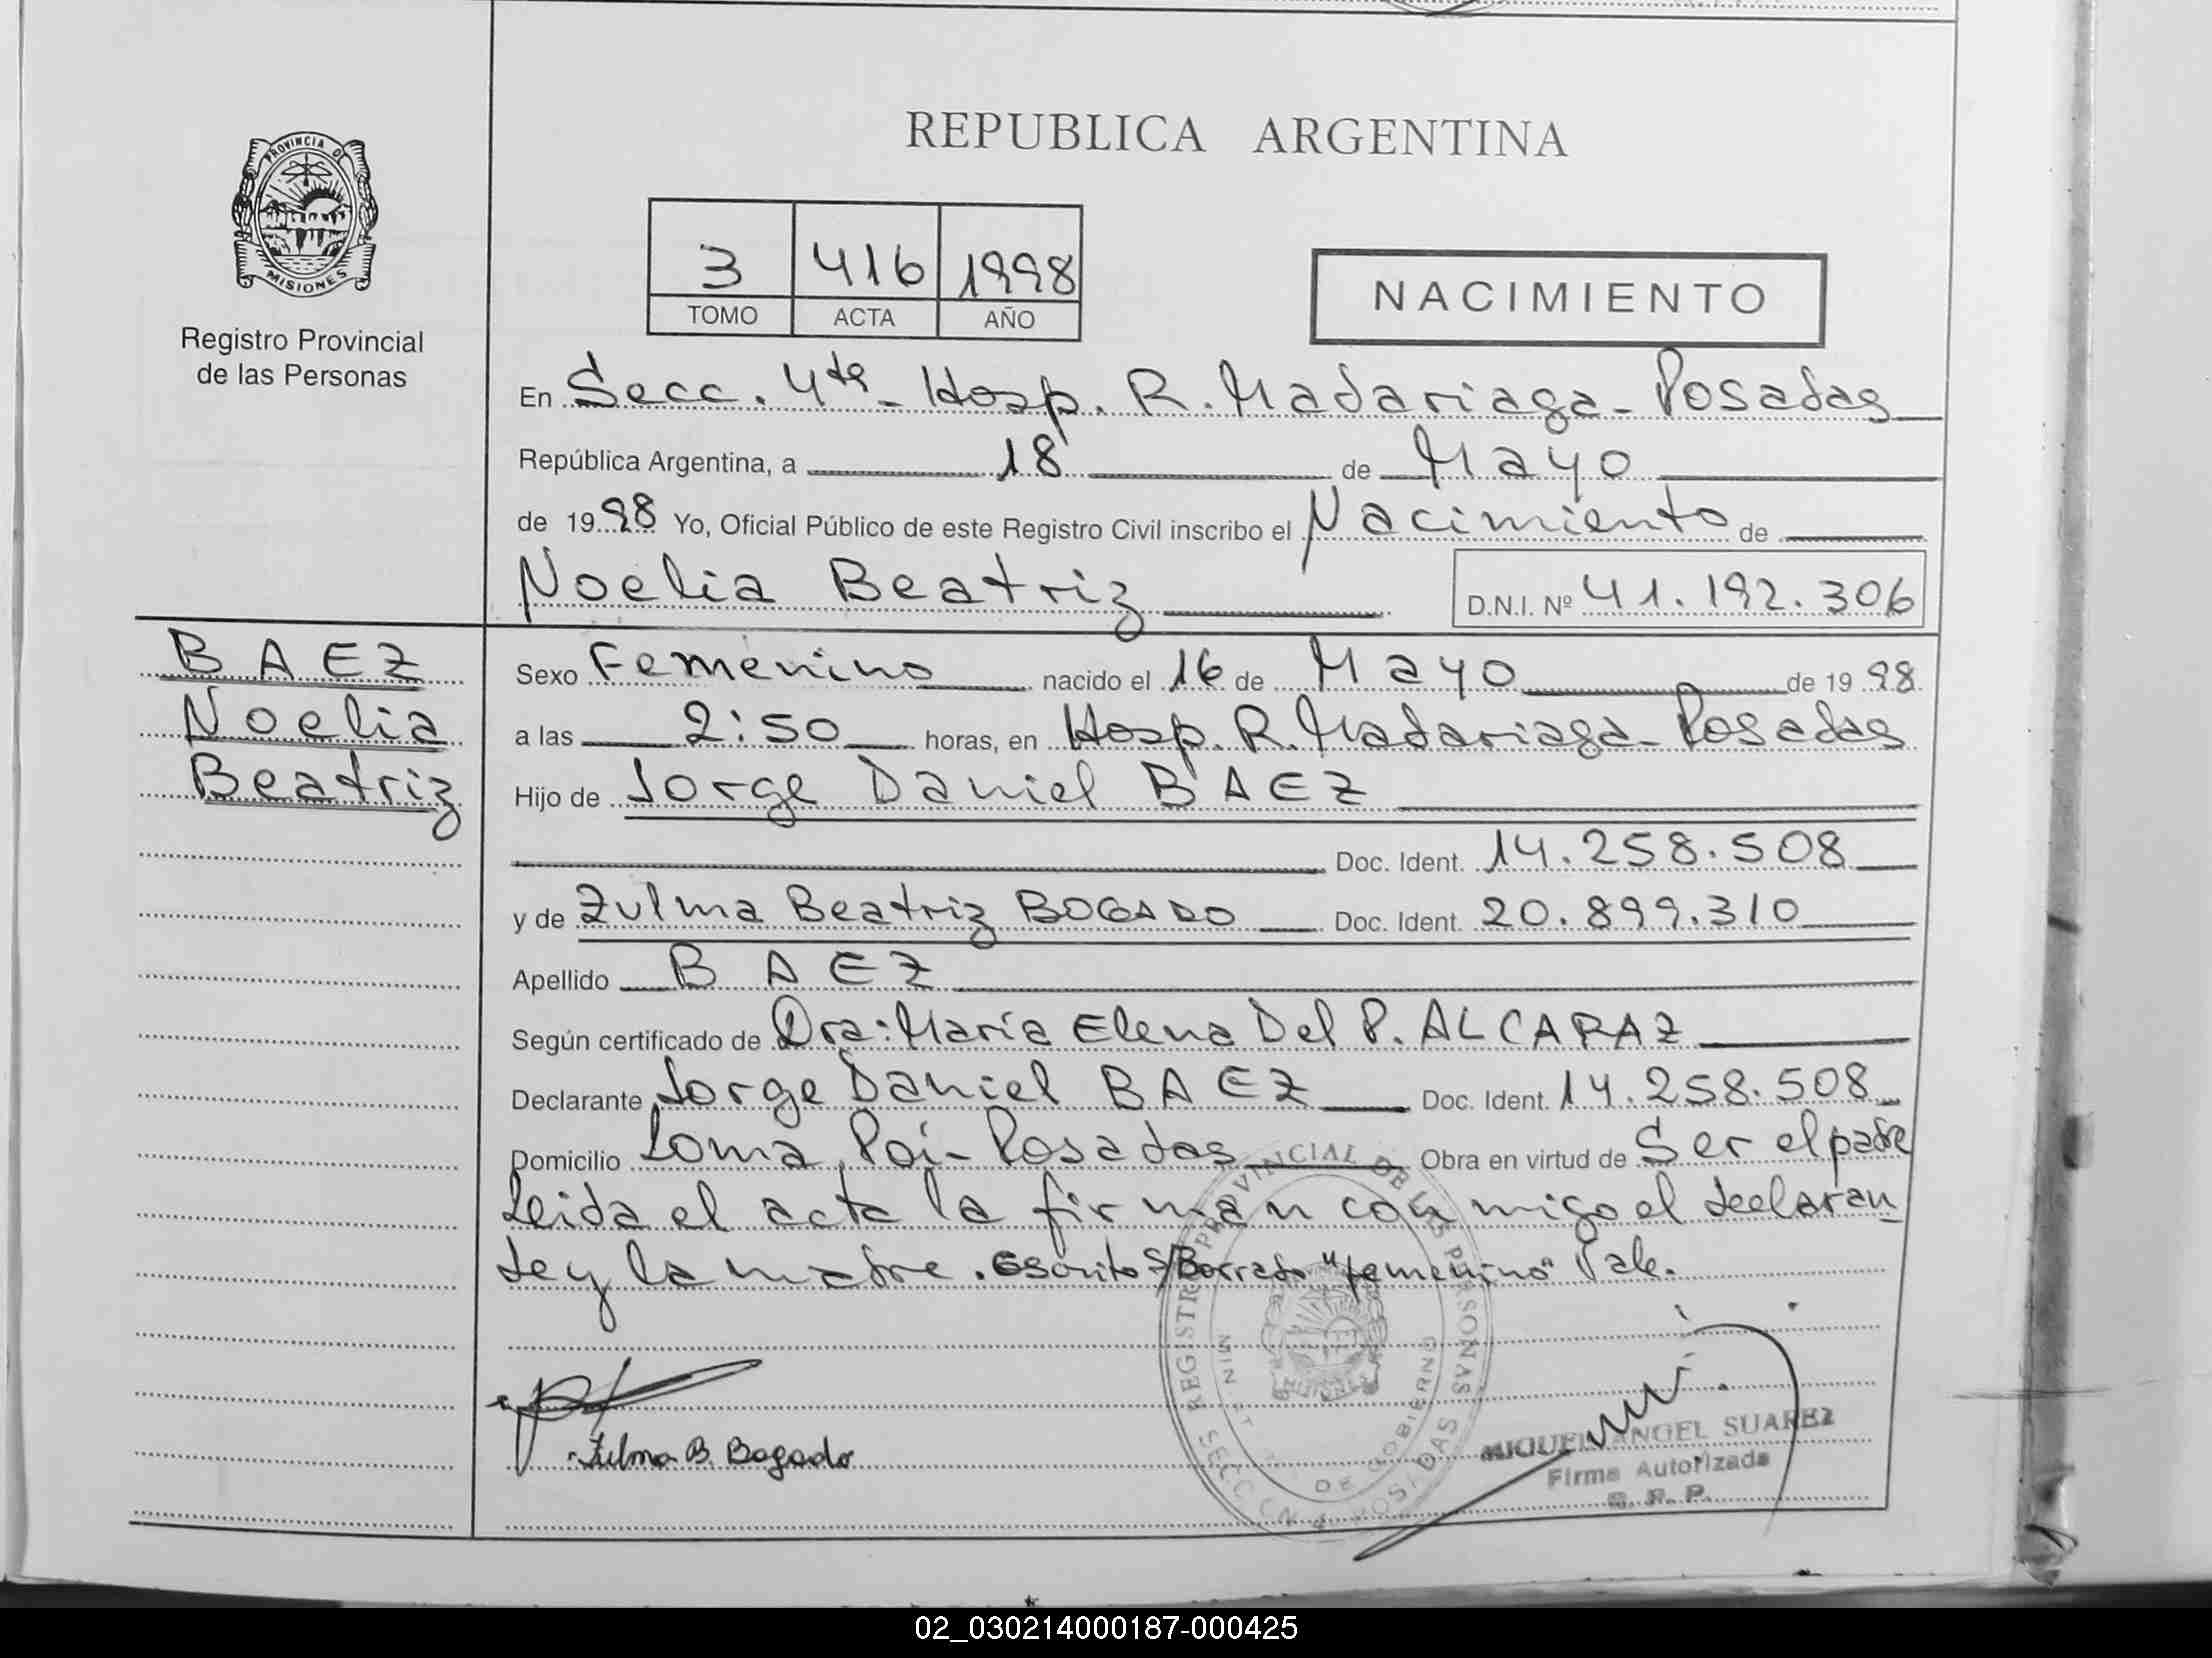 REPUBLICA ARGENTINA
PROVINCIA D
MISIONES
Registro Provincial
de las Personas
3 416 1998
TOMO ACTA AÑO
NACIMIENTO
En Secc. 4ta - Hosp. R. Madariaga - Posadas
República Argentina, a 18 de Mayo
de 1998 Yo, Oficial Público de este Registro Civil inscribo el Nacimiento de
Noelia Beatriz D.N.I. Nº 41.192.306
BAEZ
Noelia
Beatriz
Sexo Femenino nacido el 16 de Mayo de 1998
a las 2:50 horas, en Hosp. R. Madariaga - Posadas
Hijo de Jorge Daniel BAEZ
Doc. Ident. 14.258.508
y de Zulma Beatriz BOGADO Doc. Ident. 20.899.310
Apellido BAEZ
Según certificado de Dra: María Elena Del P. ALCARAZ
Declarante Jorge Daniel BAEZ Doc. Ident. 14.258.508
Domicilio Loma Poi - Posadas Obra en virtud de Ser el padre
Leida el acta la firman con migo el declaran
te y la madre. Escrito S/Borrado "femenino" Vale.
REGISTRO PROVINCIAL DE LAS PERSONAS
DE GOBIERNO
SECC CN 4 POSADAS
Zulma B. Bogado
MIGUEL ANGEL SUAREZ
Firma Autorizada
R. P. P.
02_030214000187-000425